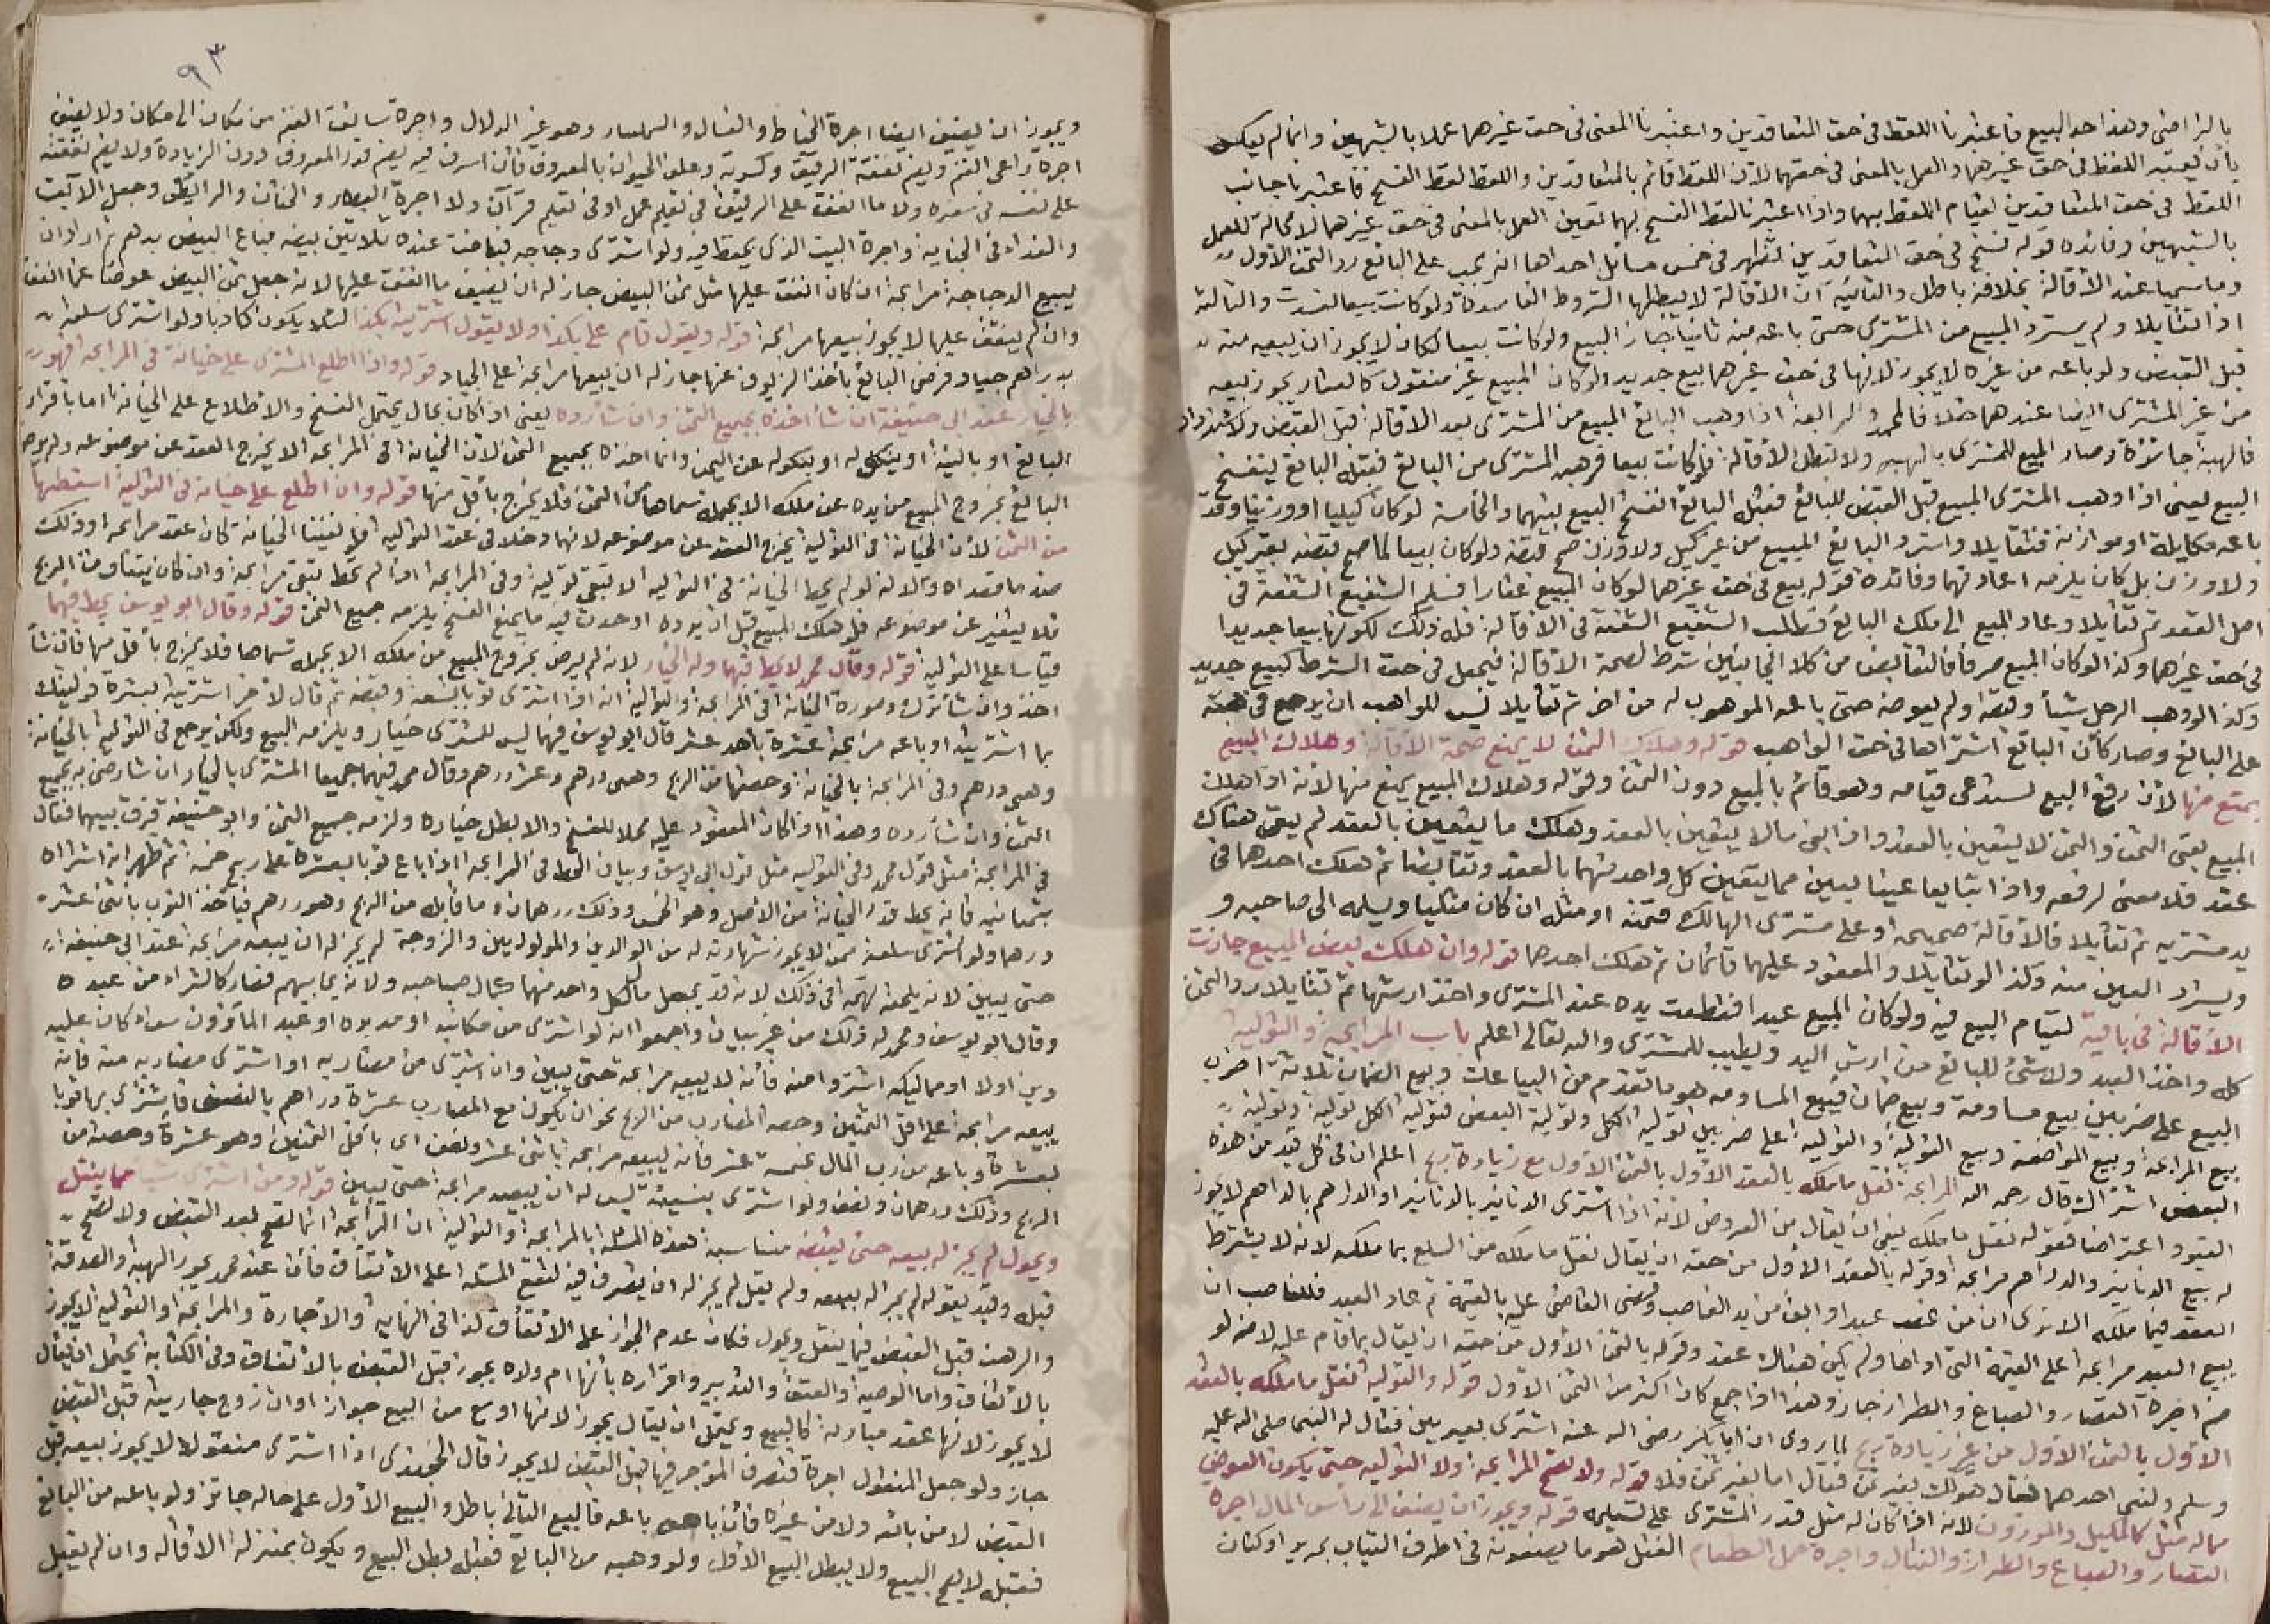 بالتراضي وهذا حد البيع فاعتبرنا اللفظ في حق المتعاقدين واعتبرنا المعنى في حق غيرهما عملا بالشبهين وانما لم يعكس
بأن يعتبر اللفظ في حق غيرهما والعمل بالمعنى في حقهما لان اللفظ قائم بالمتعاقدين واللفظ لفظ الفسخ فاعتبرنا جانب
اللفظ في حق المتعاقدين لقيام اللفظ بهما واذا اعتبرنا لفظ الفسخ بهما تعين العمل بالمعنى في حق غيرهما لا محالة للعمل
بالشبهين وفائده قوله فسخ في حق المتعاقدين تظهر في خمس مسائل احداها انه يجب على البائع رد الثمن الاول
وما سميا عند الاقالة بخلافه باطل والثانية ان الاقالة لا يبطلها الشروط الفاسدة ولو كانت بيعا لفسدت والثالثة
اذا تقايلا ولم يسترد المبيع من المشترى حتى باعه منه ثانيا جاز البيع ولو كانت بيعا لكان لا يجوز ان يبيعه منه
قبل القبض ولو باعه من غيره لا يجوز لانها في حق غيرهما بيع جديد ولو كان المبيع غير منقول كالعقار يجوز بيعه
من غير المشترى ايضا عندهما خلافا لمحمد والرابعة اذا وهب البائع المبيع من المشترى بعد الاقالة قبل القبض
فالهبة جائزة وصار المبيع للمشترى بالهبة ولا تبطل الاقالة فلو كانت بيعا فوهبه المشترى من البائع فقبله البائع ينفسخ
البيع يعنى اذا وهب المشترى المبيع قبل القبض للبائع فقبل البائع انفسخ البيع بينهما والخامسة لو كان كيليا او وزنيا وقد
باعه مكايلة او موازنة فتقايلا واسترد البائع المبيع من غير كيل ولا وزن صح قبضه ولو كان بيعا لما صح قبضه بغير كيل
ولا وزن بل كان يلزمه اعادتهما وفائدة قوله بيع في حق غيرهما لو كان المبيع عقارا فسلم الشفيع الشفعة في
اصل العقد ثم تقايلا وعاد المبيع الى ملك البائع فطلب الشفيع الشفعة في الاقالة فله ذلك لكونها بيعا جديدا
في حق غيرهما وكذا لو كان المبيع صرفا فالتقابض من كلا الجانبين شرط لصحة الاقالة فيجعل في حق الشرط كبيع جديد
وكذا لو وهب الرجل شيأ وقبضه ولم يعوضه حتى باعه الموهوب له من اخر ثم تقايلا ليس للواهب ان يرجع في هبته
على البائع وصار كأن البائع اشتراها في حق الواهب قوله وهلاك الثمن لا يمنع صحة الاقالة وهلاك المبيع
يمنع منها لان رفع البيع يستدعى قيامه وهو قائم بالمبيع دون الثمن وقوله وهلاك المبيع يمنع منها لأنه اذا هلك
المبيع بقى الثمن والثمن لا يتعين بالعقد واذا بقى مالا يتعين بالعقد وهلك ما يتعين بالعقد لم يبق هناك
عقد فلا معنى لرفعه واذا تبايعا عينا بعين مما يتعين كل واحد منهما بالعقد وتقابضا ثم هلك احدهما في
يد مشتريه ثم تقايلا فالاقالة صحيحة وعلى مشترى الهالك قيمته او مثله ان كان مثليا ويسلمه الى صاحبه و
ويسترد العين منه وكذا لو تقايلا والمعقود عليهما قائمان ثم هلك احدهما قوله وان هلك بعض المبيع جازت
الاقالة في باقية لقيام البيع فيه ولو كان المبيع عبدا فقطعت يده عند المشترى واخذ ارشها ثم تقايلا رد الثمن
كله واخذ العبد ولا شئ للبائع من ارش اليد ويطيب للمشترى والله تعالى اعلم باب المرابحة والتولية
البيع على ضربين بيع مساومة وبيع ضمان فبيع المساومه هو ما تقدم من البياعات وبيع الضمان ثلاثة اضرب
بيع المرابحة وبيع المواضعة وبيع التولية والتولية على ضربين تولية الكل وتولية البعض فتولية الكل تولية وتولية
البعض اشتراك قال رحمه الله المرابحة نقل ما ملكه بالعقد الأول بالثمن الأول مع زيادة ربح اعلم ان في كل قيد من هذه
القيود اعتراضا فقوله نقل ما ملك ينبغى ان يقال من العروض لانه اذا اشترى الدنانير بالدنانير او الدراهم بالدراهم لا يجوز
له بيع الدنانير والدراهم مرابحة وقوله بالعقد الأول من حقه ان يقال نقل ما ملكه من السلع بما ملكه لانه لا يشترط
العقد فيما ملكه الا ترى ان من غصب عبدا وابق من يد الغاصب وقضى القاضى عليه بالقيمة ثم عاد العبد فللغاصب ان
يبيع العبد مرابحة على القيمة التى اداها ولم يكن هناك عقد وقوله بالثمن الأول من حقه ان يقال بما قام عليه لانه لو
ضم اجرة القصار والصباغ والطراز جاز وهذا اذا جمع كان اكثر من الثمن الأول قوله والتولية نقل ما ملكه بالعقد
الاول بالثمن الاول من غير زيادة ربح لما روى ان ابا بكر رضى الله عنه اشترى بعيرين فقال له النبى صلى الله عليه
وسلم ولنى احدهما فقال هو لك بغير ثمن فقال اما بغير ثمن فلا قوله ولا تصح المرابحة ولا التولية حتى يكون العوض
مما له مثل كالمكيل والموزون لانه اذا كان له مثل قدر المشترى على تسليمه قوله ويجوز ان يضيف الى رأس المال اجرة
القصار والصباغ والطراز والفتال واجرة حمل الطعام الفتل هو ما يصنعونه في اطراف الثياب بحرير او كتان
٩٣
ويجوز ان يضيف ايضا اجرة الخياط والغسال والسمسار وهو غير الدلال واجرة سائق الغنم من مكان الى مكان ولا يضيف
اجرة راعى الغنم ويضم نفقة الرقيق وكسوته وعلف الحيوان بالمعروف فأن اسرف فيه يضم قدر المعروف دون الزيادة ولا يضم نفقته
على نفسه في سفره ولا ما انفق على الرقيق في تعليم عمل او في تعليم قرآن ولا اجرة البيطار والختان والرايض وجعل الآبق
والفداء في الجناية واجرة البيت الذى يحفظ فيه ولو اشترى دجاجة فباضت عنده ثلاثين بيضه فباع البيض بدرهم ثم اراد ان
يبيع الدجاجة مرابحة ان كان انفق عليها مثل ثمن البيض جاز له ان يضيف ما انفق عليها لانه جعل ثمن البيض عوضا عن النفقة
وان لم ينفق عليها لا يجوز بيعها مرابحة قوله ويقول قام على بكذا ولا يقول اشتريته بكذا لئلا يكون كاذبا ولو اشترى سلعة
بدراهم جياد فرضى البائع بأخذ الزيوف عنها جاز له ان يبيعها مرابحة على الجياد قوله واذا اطلع المشترى على خيانة في المرابحة فهو
بالخيار عند ابى حنيفة ان شا اخذه بجميع الثمن وان شأ رده يعنى اذا كان بحال يحتمل الفسخ والاطلاع على الخيانة اما باقرار
البائع او بالبينة او بنكوله عن اليمين وانما اخذه بجميع الثمن لان الخيانة في المرابحة لا يخرج العقد عن موضوعه ولم يرض
البائع بخروج المبيع من يده عن ملكه الا بجملة سماها من الثمن فلا يخرج بأقل منها قوله وان اطلع على خيانة في التولية اسقطها
من الثمن لأن الخيانة في التولية يخرج العقد عن موضوعه لانهما دخلا في عقد التوليه فلو بقينا الخيانة كان عقد مرابحة وذلك
ضد ما قصداه ولانه لو لم يحط الخيانة في التوليه لا تبقى تولية وفي المرابحة اذا لم تحط تبقى مرابحة وان كان يتفاوت الربح
فلا يتغير عن موضوعه فلو هلك المبيع قبل ان يرده او حدث فيه ما يمنع الفسخ يلزمه جميع الثمن قوله وقال ابو يوسف يحط فيهما
قياسا على التولية قوله وقال محمد لا يحط فيهما وله الخيار لانه لم يرض بخروج المبيع من ملكه الا بجملة سماها فلا يخرج بأقل منها فان شأ
اخذ وان شأ ترك وصورة الخيانة في المرابحة والتولية انه اذا اشترى ثوبا بتسعة وقبضه ثم قال لآخر اشتريته بعشرة وليتك
بما اشتريته او باعه مرابحة عشرة بأحد عشر قال ابو يوسف فيهما ليس للمشترى خيار ويلزمه البيع ولكن يرجع في التولية بالخيانة
وهى درهم وفي المرابحة بالخيانة وحصتها من الربح وهى درهم وعشر درهم وقال محمد فيهما جميعا المشترى بالخيار ان شا رضى به بجميع
الثمن وان شأ رده وهذا اذا كان المعقود عليه محلا للفسخ والا بطل خياره ولزمه جميع الثمن وابو حنيفة فرق بينهما فقال
في المرابحة مثل قول محمد وفي التولية مثل قول ابى يوسف وبيان الحط في المرابحة اذا باع ثوبا بعشرة على ربح خمسة ثم ظهر انه اشتراه
بثمانية فانه يحط قدر الخيانة من الاصل وهو الخمس وذلك درهمان وما قابله من الربح وهو درهم فيأخذ الثوب باثنى عشر
درهما ولو اشترى سلعة ممن لا يجوز شهادته له من الوالدين والمولودين والزوجة لم يجز له ان يبيعه مرابحة عند ابى حنيفة
حتى يبين لانه يلحقه تهمة في ذلك لانه قد يجعل مال كل واحد منهما كمال صاحبه ولانه يحابيهم فصار كالشراء من عبده
وقال ابو يوسف ومحمد له ذلك من غير بيان واجمعوا انه لو اشترى من مكاتبه او مدبره او عبده المأذون سواء كان عليه
دين اولا او مماليكه اشتروا منه فأنه لا يبيعه مرابحة حتى يبين وان اشترى من مضاربه او اشترى مضاربه منه فانه
يبيعه مرابحة على اقل الثمنين وحصه المضارب من الربح نحو ان يكون مع المضارب عشرة دراهم بالنصف فاشترى بها ثوبا
بعشرة وباعه من رب المال بخمسة عشر فأنه يبيعه مرابحة باثنى عشر ونصف اى بأقل الثمنين وهو عشرة وحصته من
الربح وذلك درهمان ونصف ولو اشترى بنسيئة ليس له ان يبيعه مرابحة حتى يبين قوله ومن اشترى شيأ مما ينقل
ويحول لم يجز له بيعه حتى يقبضه مناسبة هذه المسئلة بالمرابحة والتولية ان المرابحة انما تصح بعد القبض ولا تصح
قبله وقيد بقوله لم يجز له بيعه ولم يقل لم يجز له ان يتصرف فيه لتقع المسئلة على الاتفاق فأن عند محمد يجوز الهبة والصدقة
والرهن قبل القبض فيما ينقل ويحول فكان عدم الجواز على الاتفاق كذا في النهاية والاجارة والمرابحة والتولية لا يجوز
بالاتفاق واما الوصية والعتق والتدبير واقراره بأنها ام ولده يجوز قبل القبض بالاتفاق وفي الكتابة يحتمل ان يقال
لا يجوز لانها عقد مبادلة كالبيع ويحتمل ان يقال يجوز لانها اوسع من البيع جوازا وان زوج جاريته قبل القبض
جاز ولو جعل المنقول اجرة فتصرف المؤجر فيها قبل القبض لا يجوز قال الخجندى اذا اشترى منقولا لا يجوز بيعه قبل
القبض لا من بائعه ولا من غيره فأن باعه فالبيع الثانى باطل والبيع الأول على حاله جائز ولو باعه من البائع
فقبله لا يصح البيع ولا يبطل البيع الأول ولو وهبه من البائع فقبله بطل البيع ويكون بمنزلة الاقالة وان لم يقبل